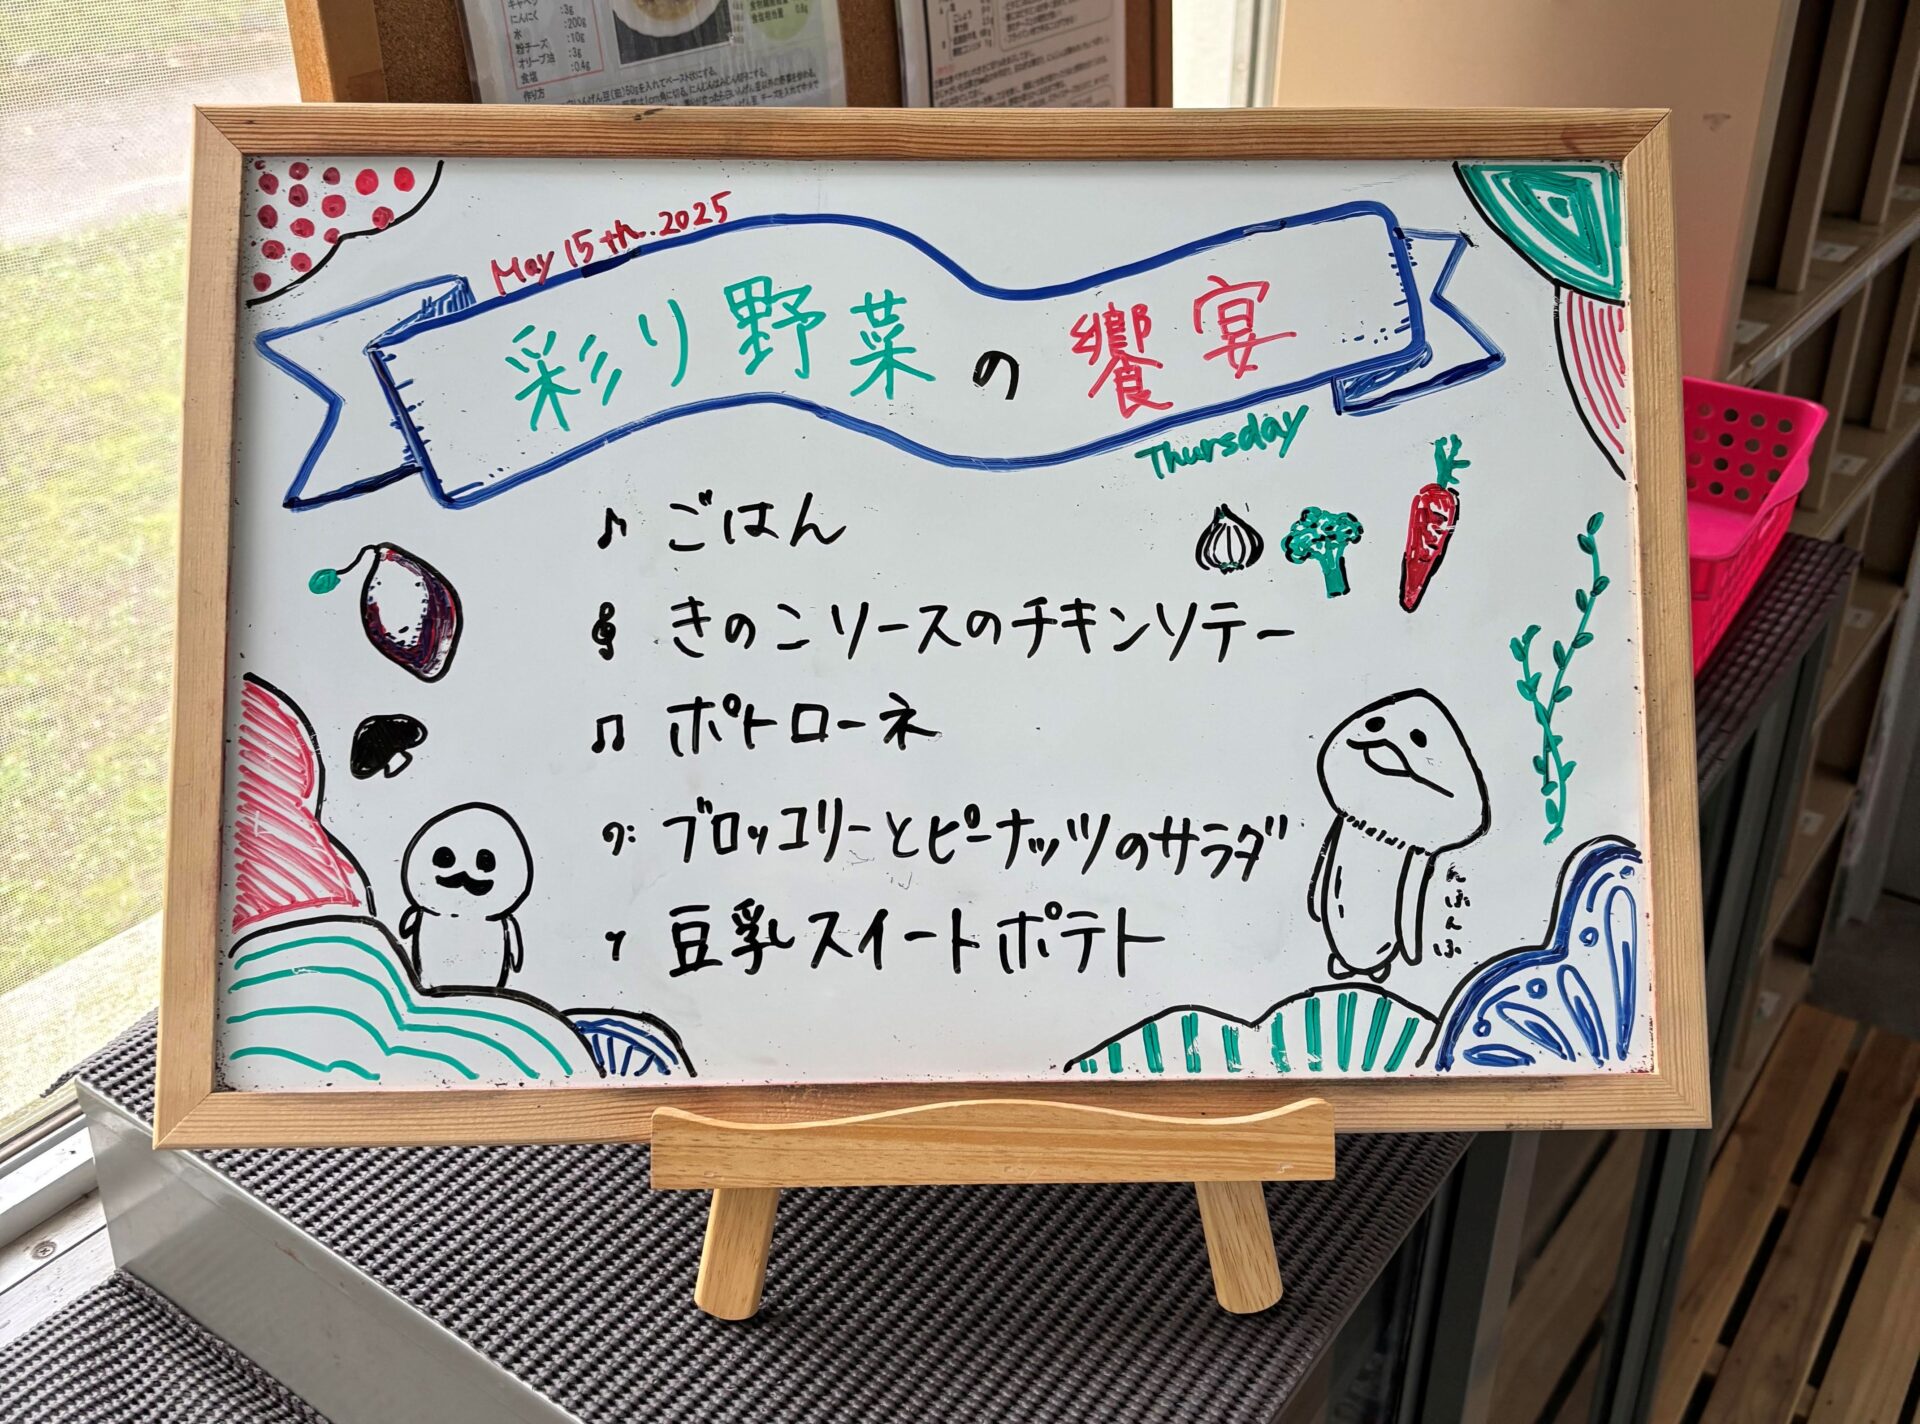 キャベツ
にんにく :3g
水 :200g
粉チーズ :10g
オリーブ油 :3g
食塩 :0.4g
作り方
May 15th. 2025
彩り野菜の饗宴
Thursday
ごはん
きのこソースのチキンソテー
ポトローネ
ブロッコリーとピーナッツのサラダ
豆乳スイートポテト